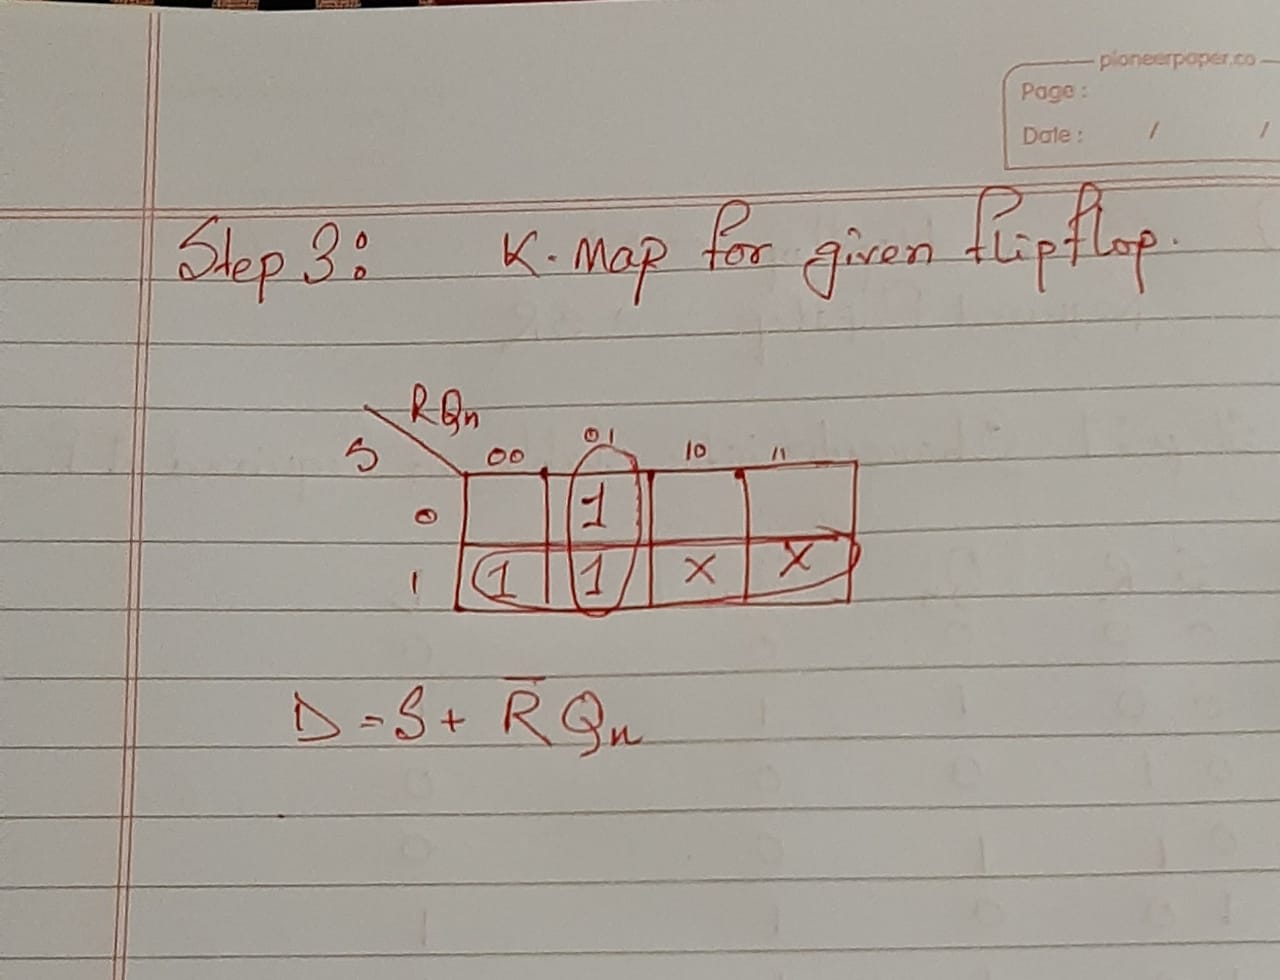 pioneerpaper.co
Page :
Date : / /
Step 3: K-Map for given flipflop.
RQn
S 00 01 10 11
0 1
1 1 1 X X
D = S + R̅ Qn